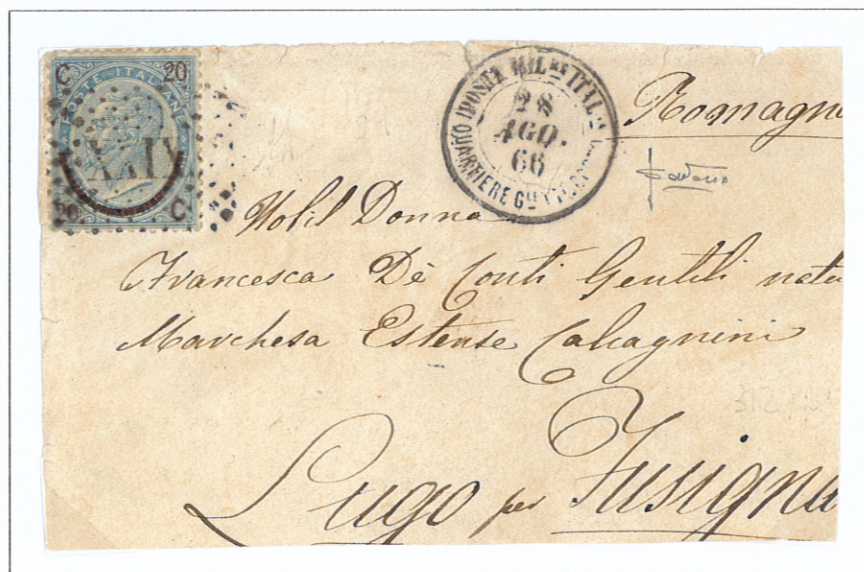 C 20
POSTE ITALIANE
XXIX
20 C
POSTA MIL.RE ITAL.
28
AGO.
66
QUARTIERE G.LE
Romagn
Nobil Donna
Francesca De Conti Gentili nata
Marchesa Estense Calcagnini
Lugo per Fusigna